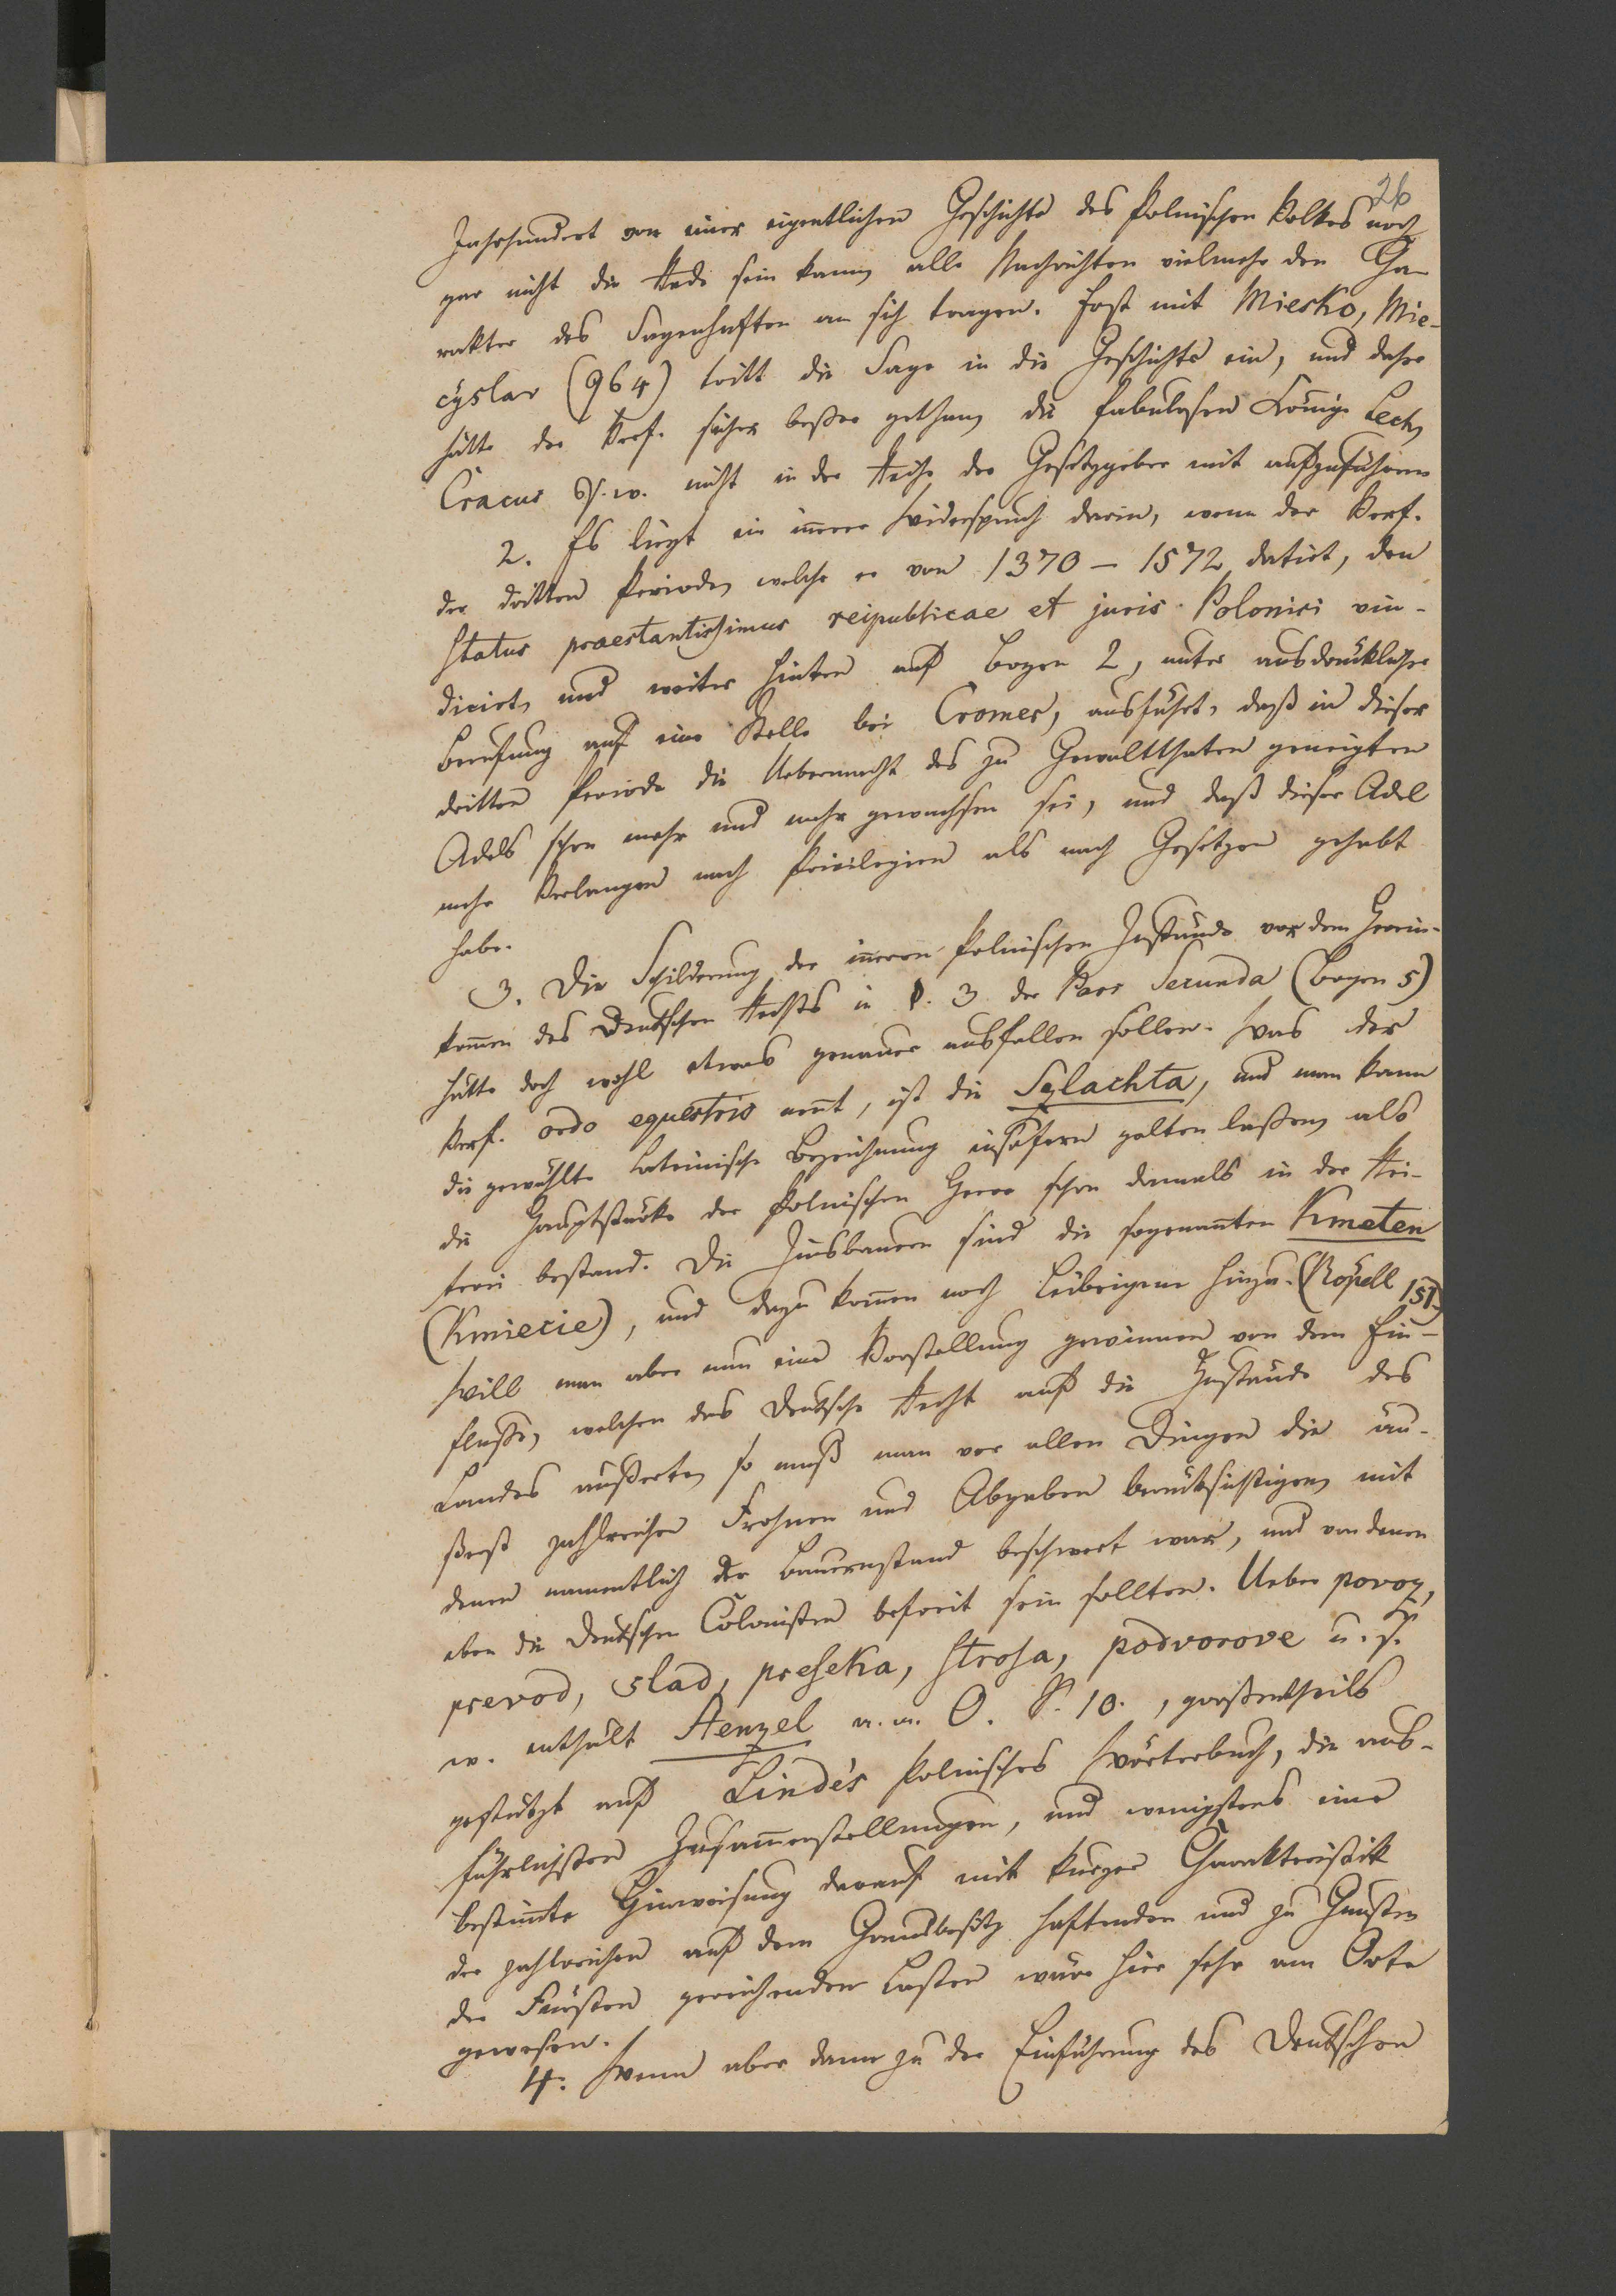 26
Jahrhundert von einer eigentlichen Geschichte des Polnischen Volkes noch
gar nicht die Rede sein kann, alle Nachrichten vielmehr den Cha-
rakter des Sagenhaften an sich tragen. Erst mit Miesko, Mie-
cyslav (964) tritt die Sage in die Geschichte ein, und daher
hätte der Verf. sicher beßer gethan, die fabulosen Könige Lech,
Cracus u. s. w. nicht in der Reihe der Gesetzgeber mit aufzuführen
2. Es liegt ein innerer Widerspruch darin, wenn der Verf.
der dritten Periode, welche er von 1370 – 1572 datirt, den
Status praestantissimus reipublicae et juris Polonici vin-
dicirt, und weiter hinten auf Bogen 2, unter ausdrücklicher
Berufung auf eine Stelle bei Cromer, ausführt, daß in dieser
dritten Periode die Uebermacht des zu Gewaltthaten geneigten
Adels schon mehr und mehr gewachsen sei, und daß dieser Adel
mehr Verlangen nach Privilegien als nach Gesetzen gehabt
habe.
3. Die Schilderung der innern Polnischen Zustände vor dem Herein-
kom̄en des Deutschen Rechts in §. 3 der Pars Secunda (Bogen 5)
hätte doch wohl etwas genauer ausfallen sollen. Was der
Verf. ordo equestris nen̄t, ist die Szlachta, und man kann
die gewählte Lateinische Bezeichnung insofern gelten laßen, als
die Hauptstärke der Polnischen Heere schon damals in der Rei-
terei bestand. Die Zinsbauern sind die sogenan̄ten Kmeten
(Kmiecie), und dazu kom̄en noch Leibeigene hinzu. (Röpell 151.)
Will man aber nun eine Vorstellung gewinnen von dem Ein-
fluße, welchen das Deutsche Recht auf die Zustände des
Landes äußerte, so muß man vor allen Dingen die äu-
ßerst zahlreichen Frohnen und Abgaben berücksichtigen, mit
denen namentlich der Bauernstand beschwert war, und von denen
eben die Deutschen Colonisten befreit sein sollten. Ueber povoz,
prevod, slad, preseka, strosa, podvorove u. s.
w. enthält Stenzel a. a. O. S. 10., großentheils
gestützt auf Linde's Polnisches Wörterbuch, die aus-
führlichsten Zusam̄enstellungen, und wenigstens eine
bestim̄te Hinweisung darauf mit kurzer Charakteristik
der zahlreichen auf dem Grundbesitz haftenden und zu Gunsten
der Fürsten gereichenden Lasten wäre hier sehr am Orte
gewesen.
4. Wenn aber dann zu der Einführung des Deutschen